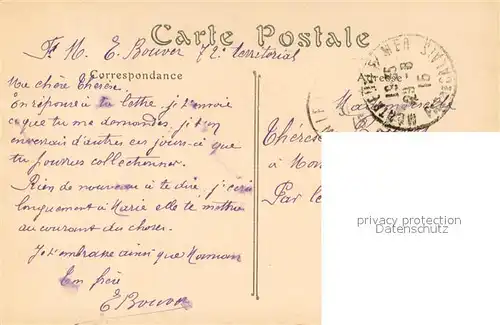 Carte Postale
F. M. E. Bouvor 72e territorial
Correspondance
Adresse
Ma chère Thérèse.
En réponse à ta lettre, je t'envoie
ce que tu me demandes, je t'en
enverrais d'autres ces jours-ci que
tu pourras collectionner.
Rien de nouveau à te dire, j'écris
longuement à Marie elle te mettra
au courant des choses.
Je t'embrasse ainsi que Maman
Ton frère
E Bouvor
Mademoiselle
Thérèse
à Mon
Par le
privacy protection
Datenschutz